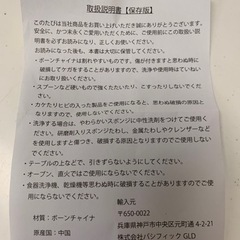 取扱説明書【保存版】
このたびは当社商品をお買い上げいただき誠にありがとうございます。
安全に、かつ末永くご愛用いただくために、ご使用前にこの取扱い説
明書を必ずお読みになり、正しくお使いください。
お読みになった後も、本書は大切に保管してください。
・ボーンチャイナは割れやすいものです。傷が付きますと思わぬ時に
破損してケガをすることがありますので、洗浄や使用時はていねい
にお取り扱いください。
・スプーンなど硬いもので強くたたいたり、こすったりしないでくださ
い。
・カケたりヒビの入った製品をご使用になると、思わぬ破損の原因と
なりますので、使用しないでください。
・洗浄する場合は、やわらかいスポンジに中性洗剤をつけてお洗いく
ださい。研磨剤入りスポンジたわし、金属たわしやクレンザーなど
を使用されますと傷が付き、破損する原因となりますので、ご使用
にならないでください。
・テーブルの上などで、引きずらないようにしてください。
・オーブン、直火ではご使用にならないでください。
・食器洗浄機、乾燥機等思わぬ時に破損することがありますのでご使
用にならないでください。
材質：ボーンチャイナ
原産国：中国
輸入元
〒650-0022
兵庫県神戸市中央区元町通 4-2-21
株式会社パシフィック GLD